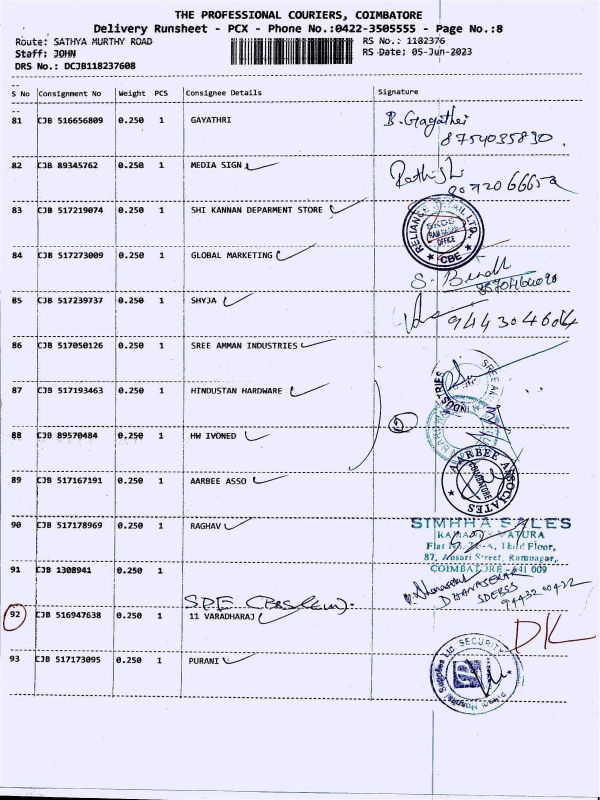 THE PROFESSIONAL COURIERS, COIMBATORE
Delivery Runsheet - PCX - Phone No.:0422-3505555 - Page No.:8
Route: SATHYA MURTHY ROAD RS No.: 1182376
Staff: JOHN RS Date: 05-Jun-2023
DRS No.: DCJB118237608
S No Consignment No Weight PCS Consignee Details Signature
81 CJB 516656809 0.250 1 GAYATHRI B. Gayathri
8754035830.
82 CJB 89345762 0.250 1 MEDIA SIGN
83 CJB 517219074 0.250 1 SHI KANNAN DEPARMENT STORE RELIANCE RETAIL LTD. OFFICE CBE
84 CJB 517273009 0.250 1 GLOBAL MARKETING
85 CJB 517239737 0.250 1 SHYJA 944304604
86 CJB 517050126 0.250 1 SREE AMMAN INDUSTRIES
87 CJB 517193463 0.250 1 HINDUSTAN HARDWARE INDUSTRIES
88 CJB 89570484 0.250 1 HW IVONED
89 CJB 517167191 0.250 1 AARBEE ASSO AARBEE ASSOCIATES COIMBATORE
90 CJB 517178969 0.250 1 RAGHAV SIMHHA SALES
Third Floor,
87, Ansari Street, Ramnagar,
COIMBATORE - 641 009
91 CJB 1308941 0.250 1 DHANASEKAR
SDEBSS
94432 00432
S.D.E
92 CJB 516947638 0.250 1 11 VARADHARAJ DK
93 CJB 517173095 0.250 1 PURANI SECURITY